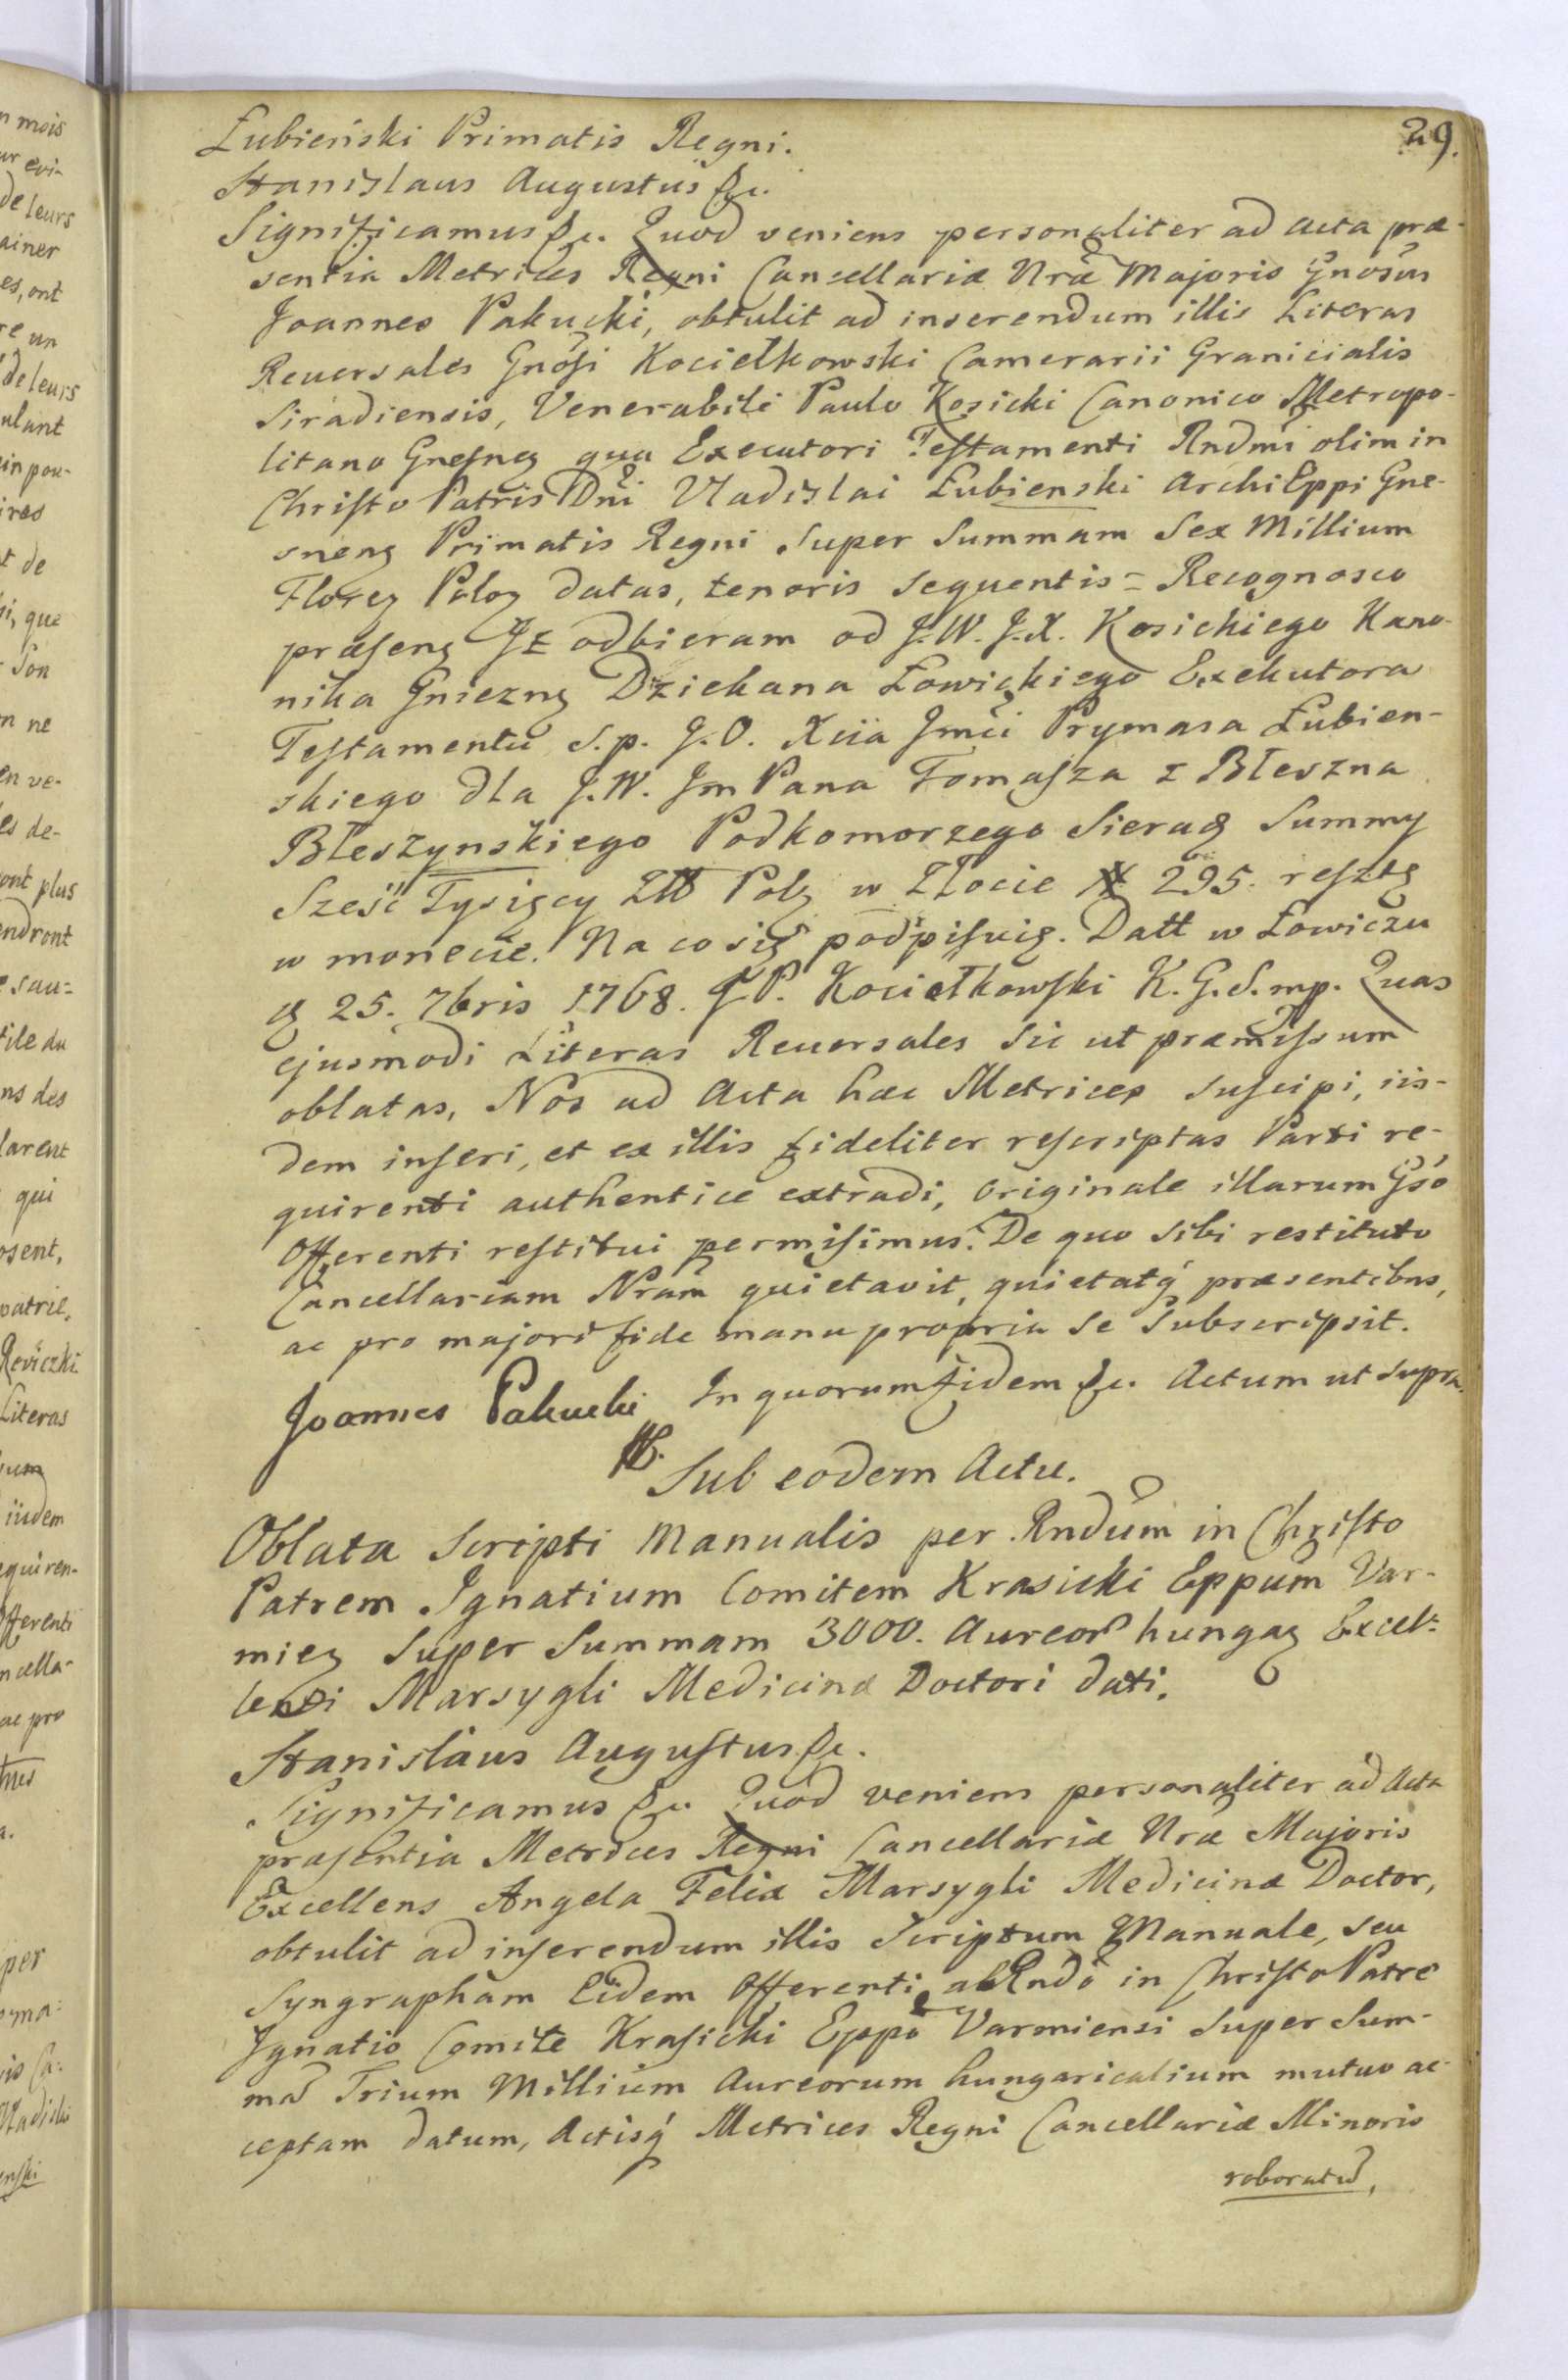 29.
Łubieński Primatis Regni.
Stanislaus Augustus &c.
Significamus &c. Quod veniens personaliter ad Acta præ-
sentia Metrices Regni Cancellariæ Nræ Majoris Gnosus
Joannes Pakucki, obtulit ad inserendum illis Literas
Reversales Gnosi Kociełkowski Camerarii Granicialis
Siradiensis, Venerabili Paulo Kosicki Canonico Metropo-
litano Gnesnen qua Executori Testamenti Rndmi olim in
Christo Patris Dni Vladislai Łubienski Archi Eppi Gne-
snen Primatis Regni super Summam Sex Millium
Floren Polon datas, tenoris sequentis = Recognosco
præsen Jż odbieram od J.W.J.X. Kosickiego Kano-
nika Gniezn Dziekana Łowickiego Exekutora
Testamentu S.p. J.O. Xcia Jmci Prymasa Łubien-
skiego dla J.W. Jm Pana Tomasza z Bleszna
Błeszynskiego Podkomorzego Sieradz Summy
Sześć Tysięcy Złł Pol w Złocie # 295. resztę
w monecie. Na co się podpisuię. Datt w Łowiczu
d 25. 7bris 1768. J P. Kociełkowski K.G.S. mp. Quas
ejusmodi Literas Reversales sic ut præmissum
oblatas, Nos ad Acta hæc Metrices suscipi, iis-
dem inseri, et ex illis fideliter rescriptas Parti re-
quirenti authentice extradi, Originale illarum Gso
Offerenti restitui permisimus. De quo sibi restituto
Cancellariam Nram quietavit, quietatq præsentibus,
ac pro majori fide manu propria se subscripsit.
Joannes Pakucki In quorum fidem &c. Actum ut supra.
Sub eodem Actu.
Oblata Scripti Manualis per Rndum in Christo
Patrem Ignatium Comitem Krasicki Eppum Var-
mien super Summam 3000. Aureor hungar Excel-
lenti Marsygli Medicinæ Doctori dati.
Stanislaus Augustus &c.
Significamus &c. Quod veniens personaliter ad Acta
præsentia Metrices Regni Cancellariæ Nræ Majoris
Excellens Angela Felix Marsygli Medicinæ Doctor,
obtulit ad inserendum illis Scriptum Manuale, seu
Syngrapham Eidem Offerenti, ab Rndo in Christo Patre
Ignatio Comite Krasicki Eppo Varmiensi super Sum-
ma Trium Millium Aureorum hungaricalium mutuo ac-
ceptam datum, Actisq Metrices Regni Cancellariæ Minoris
roboratu,